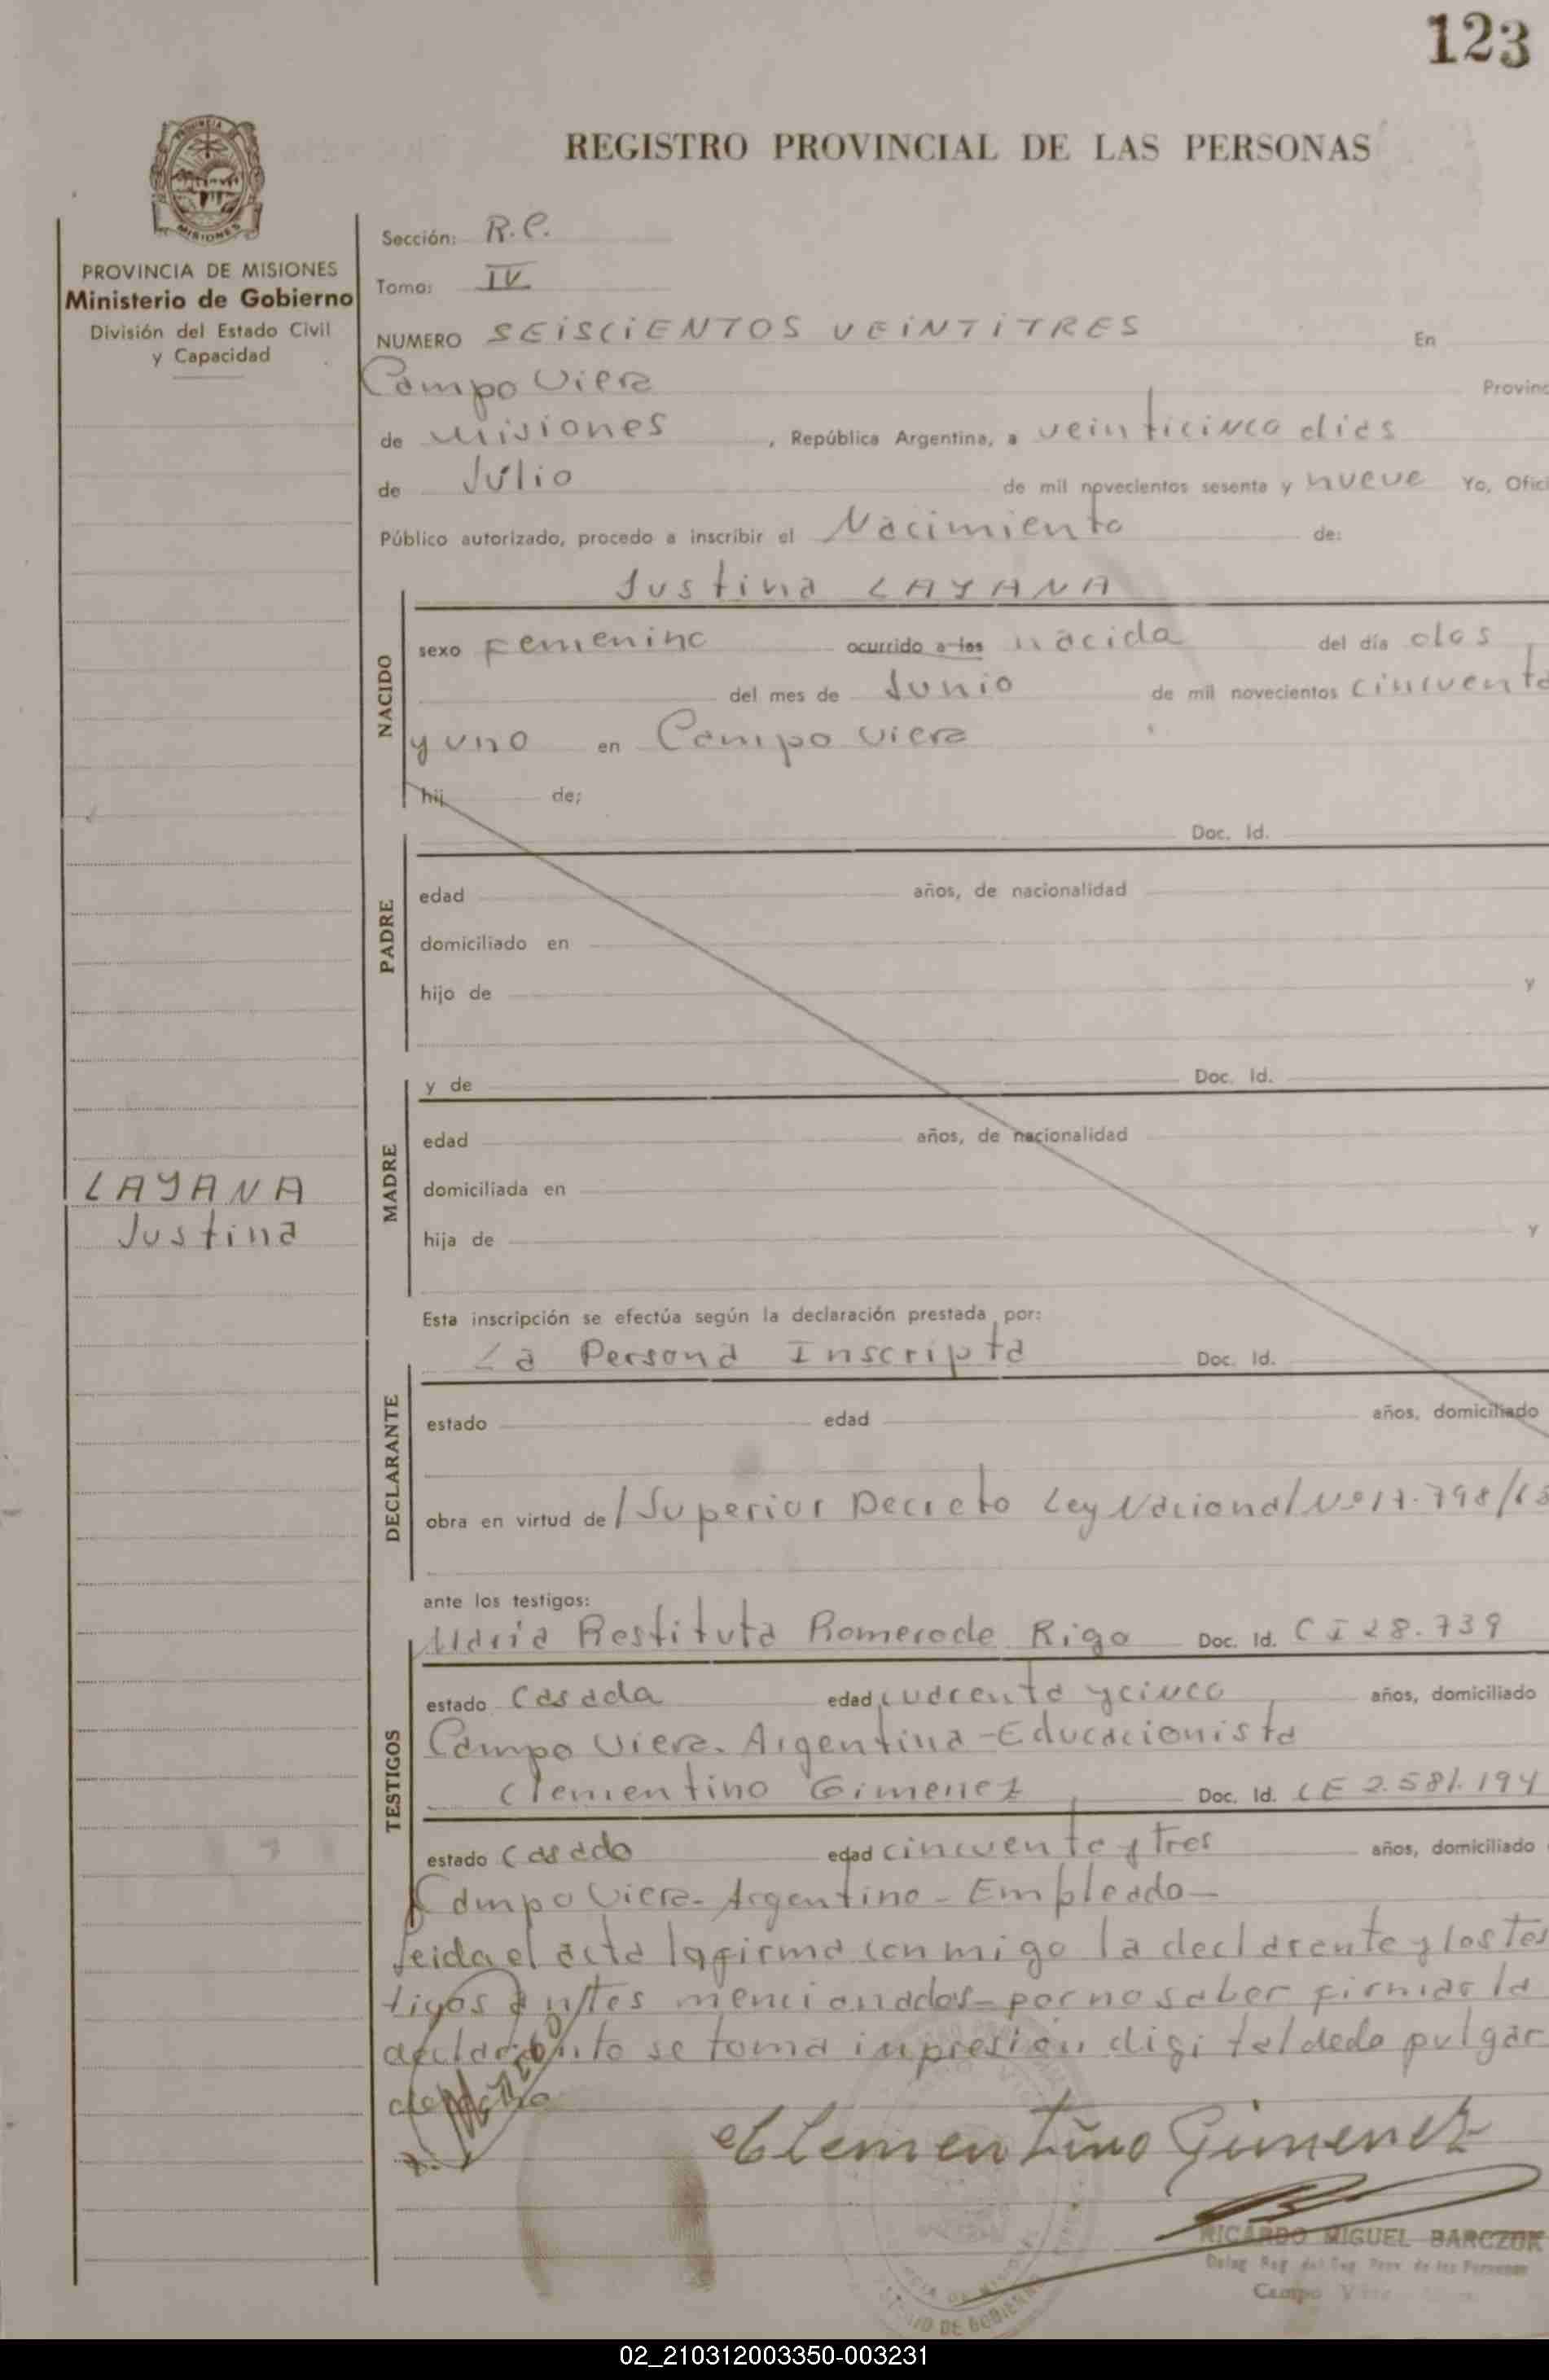 123
REGISTRO PROVINCIAL DE LAS PERSONAS
MISIONES
PROVINCIA DE MISIONES
Ministerio de Gobierno
División del Estado Civil
y Capacidad
Sección: R.C.
Tomo: IV
NUMERO SEISCIENTOS VEINTITRES En
Campo Viera Provinc
de Misiones , República Argentina, a veinticinco dias
de Julio de mil novecientos sesenta y nueve Yo, Ofici
Público autorizado, procedo a inscribir el Nacimiento de:
NACIDO
Justina LAYANA
sexo Femenino ocurrido a las nacida del día dos
del mes de Junio de mil novecientos cincuenta
y uno en Campo Viera
hij de;
PADRE
Doc. Id.
edad años, de nacionalidad
domiciliado en
hijo de y
MADRE
y de Doc. Id.
edad años, de nacionalidad
domiciliada en
hija de y
LAYANA
Justina
Esta inscripción se efectúa según la declaración prestada por:
DECLARANTE
La Persona Inscripta Doc. Id.
estado edad años, domiciliado
obra en virtud de / Superior Decreto Ley Nacional Nº 17.798/
ante los testigos:
TESTIGOS
Maria Restituta Romero de Rigo Doc. Id. C I 28.739
estado Casada edad cuarenta y cinco años, domiciliado
Campo Viera. Argentina - Educacionista
Clementino Gimenez Doc. Id. LE 2.581.194
estado Casado edad cincuenta y tres años, domiciliado
Campo Viera - Argentino - Empleado -
Leida el acta la firma conmigo la declarante y los tes
tigos antes mencionados - por no saber firmar la
declarante se toma inpresion digital dedo pulgar
derecho
Clementino Gimenez
RICARDO MIGUEL BARCZUK
Deleg. Reg. del Reg. Prov. de las Personas
Campo Viera
02_210312003350-003231